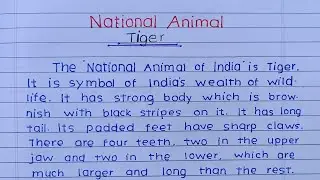 National Animal
Tiger
The "National Animal of India" is Tiger.
It is symbol of India's wealth of wild-
life. It has strong body which is brow-
nish with black stripes on it. It has long
tail. Its padded feet have sharp claws.
There are four teeth, two in the upper
jaw and two in the lower, which are
much larger and long than the rest.